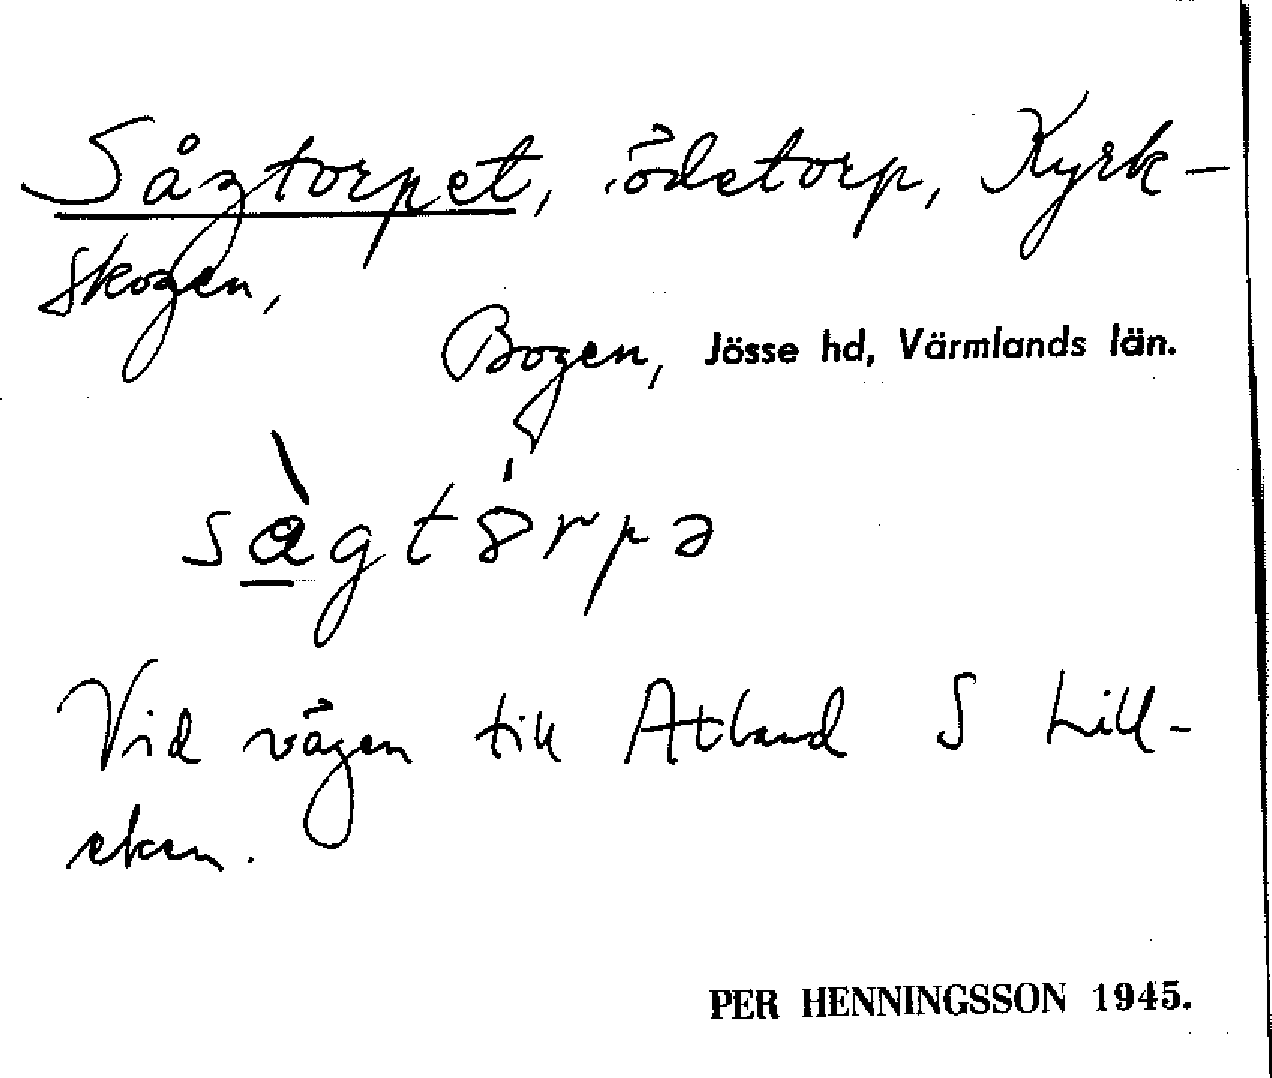 Sågtorpet, ödetorp, Kyrk-
skogen,
Bogen, Jösse hd, Värmlands län.
sàgtȣ́rpə
Vid vägen till Åtland S Lill-
eken.
PER HENNINGSSON 1945.